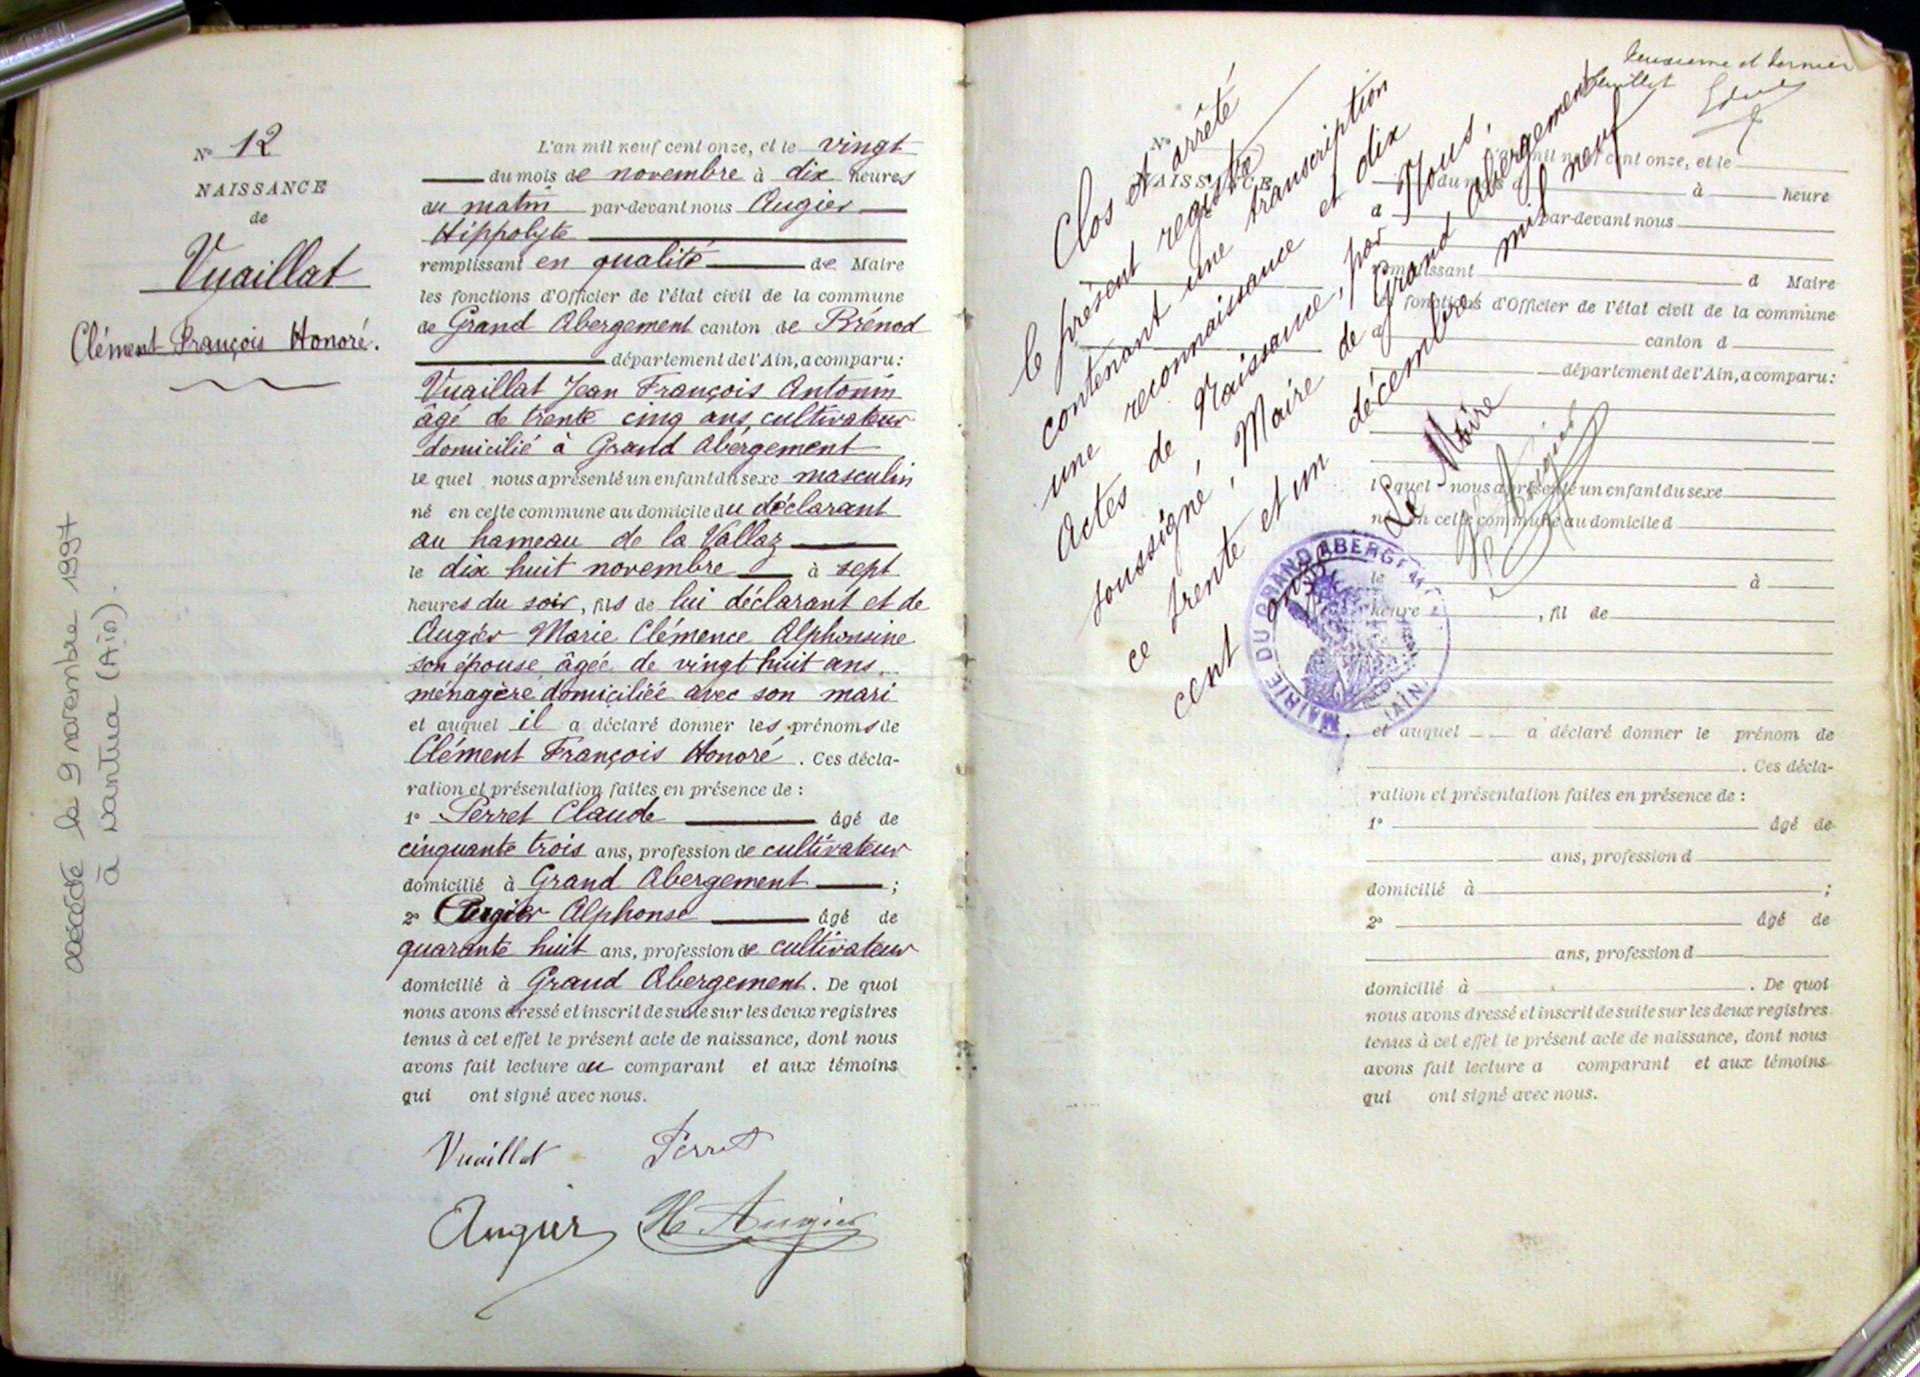 N° 12
NAISSANCE
de
Vuaillat
Clément François Honoré.
décédé le 9 novembre 1997
à Nantua (Ain).
L'an mil neuf cent onze, et le vingt
du mois de novembre à dix heures
du matin par-devant nous Augier
Hippolyte
remplissant en qualité de Maire
les fonctions d'Officier de l'état civil de la commune
de Grand Abergement canton de Brénod
département de l'Ain, a comparu :
Vuaillat Jean François Antonin
âgé de trente cinq ans, cultivateur
domicilié à Grand Abergement
lequel nous a présenté un enfant du sexe masculin
né en cette commune au domicile du déclarant
au hameau de la Vallaz
le dix huit novembre à sept
heures du soir, fils de lui déclarant et de
Augier Marie Clémence Alphonsine
son épouse, âgée de vingt huit ans,
ménagère, domiciliée avec son mari
et auquel il a déclaré donner les prénoms de
Clément François Honoré. Ces décla-
ration et présentation faites en présence de :
1° Perret Claude âgé de
cinquante trois ans, profession de cultivateur
domicilié à Grand Abergement ;
2° Augier Alphonse âgé de
quarante huit ans, profession de cultivateur
domicilié à Grand Abergement. De quoi
nous avons dressé et inscrit de suite sur les deux registres
tenus à cet effet le présent acte de naissance, dont nous
avons fait lecture au comparant et aux témoins
qui ont signé avec nous.
Vuaillat Perret
Augier H Augier
Deuxième et dernier
feuillet
Clos et arrêté
le présent registre
contenant une transcription
une reconnaissance et dix
Actes de Naissance, par Nous,
soussigné, Maire de Grand Abergement
ce trente et un décembre mil neuf
cent onze
Le Maire
H. Augier
MAIRIE DU GRAND ABERGEMENT
(AIN)
N°
NAISSANCE
L'an mil neuf cent onze, et le
du mois d à heure
d par-devant nous
remplissant d Maire
les fonctions d'Officier de l'état civil de la commune
d canton d
département de l'Ain, a comparu :
lequel nous a présenté un enfant du sexe
né en cette commune au domicile d
le à
heure , fil de
et auquel a déclaré donner le prénom de
. Ces décla-
ration et présentation faites en présence de :
1° âgé de
ans, profession d
domicilié à ;
2° âgé de
ans, profession d
domicilié à . De quoi
nous avons dressé et inscrit de suite sur les deux registres
tenus à cet effet le présent acte de naissance, dont nous
avons fait lecture a comparant et aux témoins
qui ont signé avec nous.